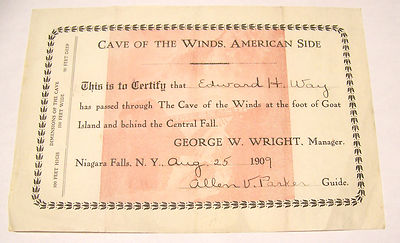 CAVE OF THE WINDS, AMERICAN SIDE
This is to Certify that Edward H. Way
has passed through The Cave of the Winds at the foot of Goat
Island and behind the Central Fall.
GEORGE W. WRIGHT, Manager.
Niagara Falls, N. Y., Aug. 25 1909
Allen V. Parker Guide.
DIMENSIONS OF THE CAVE
100 FEET HIGH
100 FEET WIDE
FEET DEEP